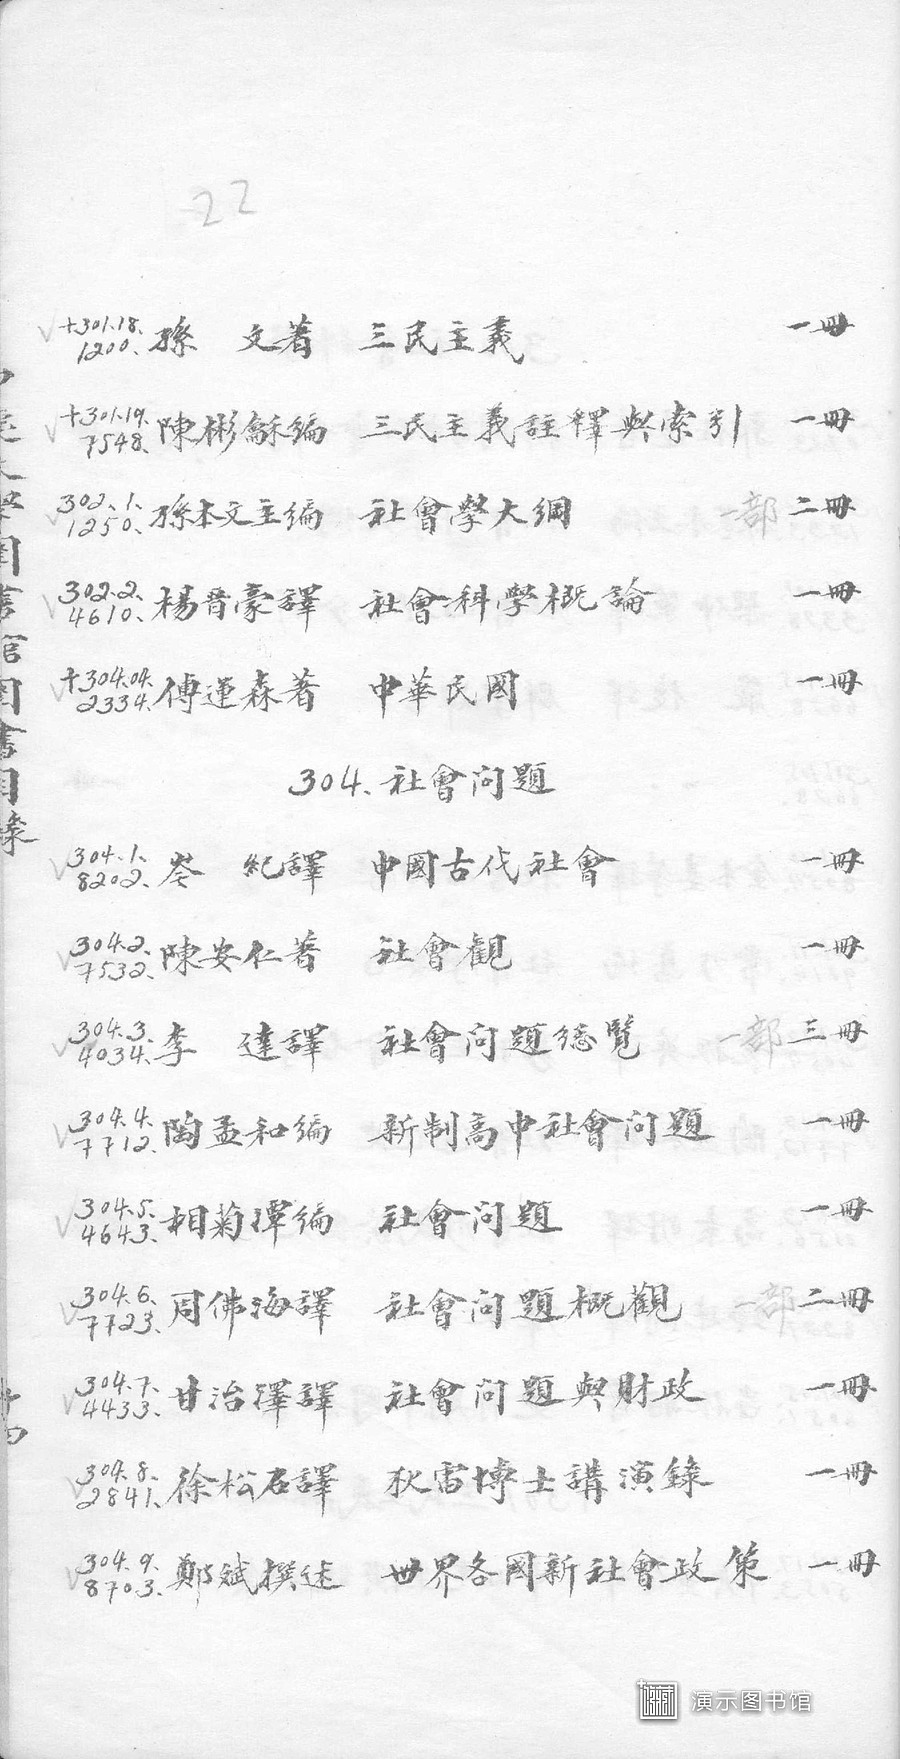 22
+301.18. 1200. 孫 文著 三民主義 一冊
+301.19. 7548. 陳彬龢編 三民主義註釋與索引 一冊
302.1. 1250. 孫本文主編 社會學大綱 一部二冊
302.2. 4610. 楊晉豪譯 社會科學概論 一冊
+304.04. 2334. 傅運森著 中華民國 一冊
304. 社會问題
304.1. 8202. 岑 紀譯 中國古代社會 一冊
304.2. 7532. 陳安仁著 社會觀 一冊
304.3. 4034. 李 達譯 社會问題總覽 一部三冊
304.4. 7712. 陶孟和編 新制高中社會问題 一冊
304.5. 4643. 相菊潭編 社會问題 一冊
304.6. 7723. 周佛海譯 社會问題概觀 一部二冊
304.7. 4433. 甘浩澤譯 社會问題與財政 一冊
304.8. 2841. 徐松石譯 狄雷博士講演錄 一冊
304.9. 8703. 鄭斌撰述 世界各國新社會政策 一冊
圖書館圖書目錄
演示图书馆